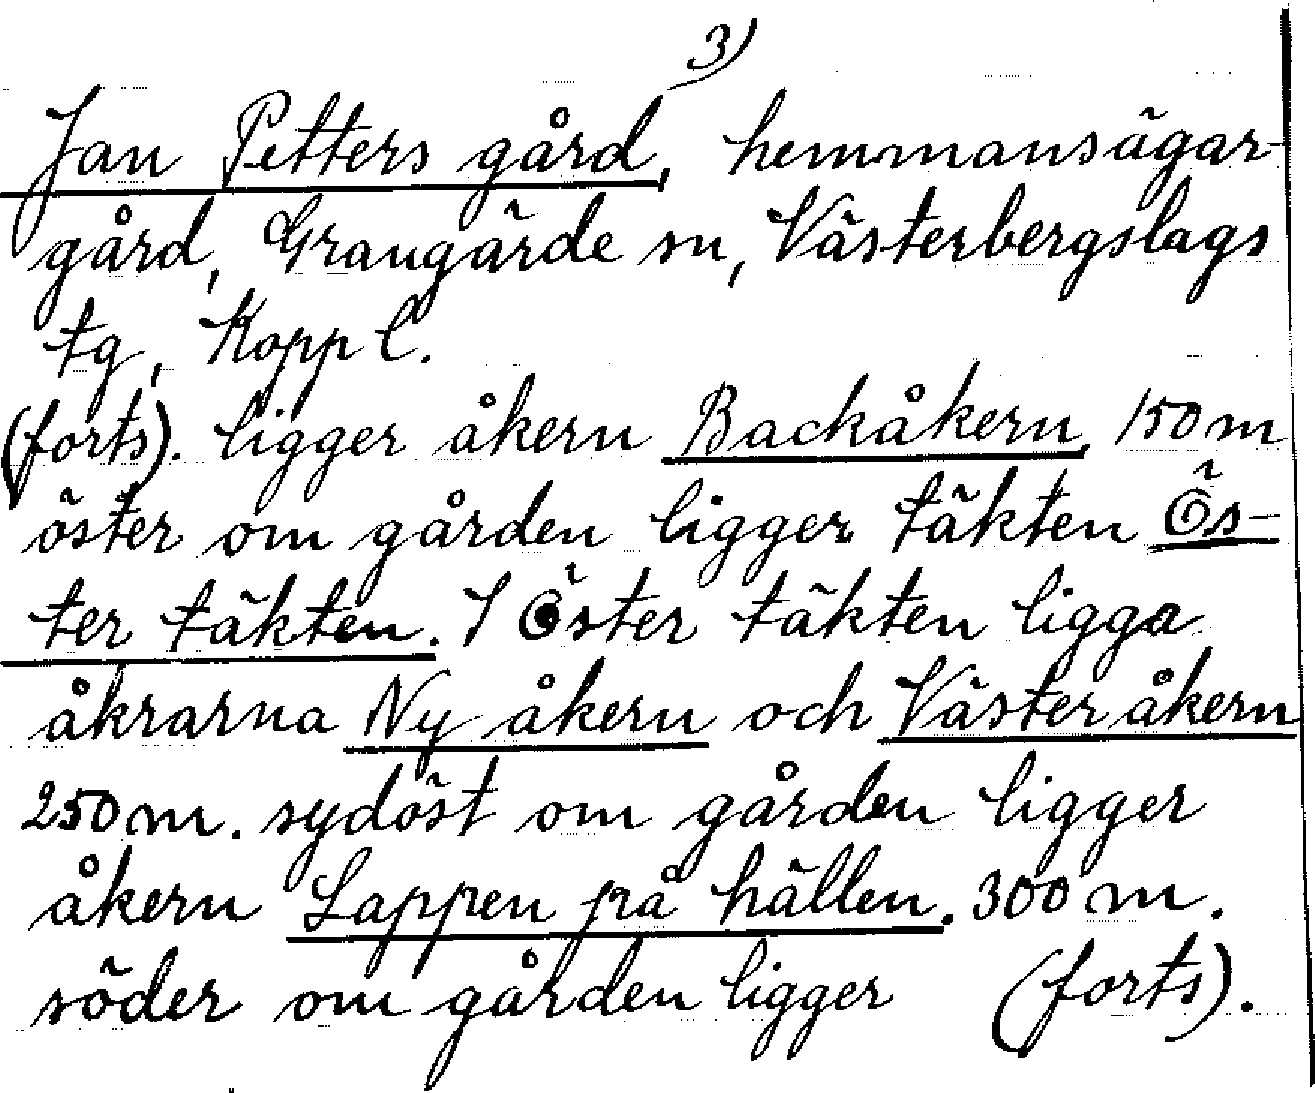 3)
Jan Petters gård, hemmansägar-
gård, Grangärde sn, Västerbergslags
tg, Kopp l.
(forts). ligger åkern Backåkern. 150 m
öster om gården ligger täkten Ös-
ter täkten. I Öster täkten ligga
åkrarna Ny åkern och Väster åkern
250 m. sydöst om gården ligger
åkern Lappen på hällen. 300 m.
söder om gården ligger (forts).